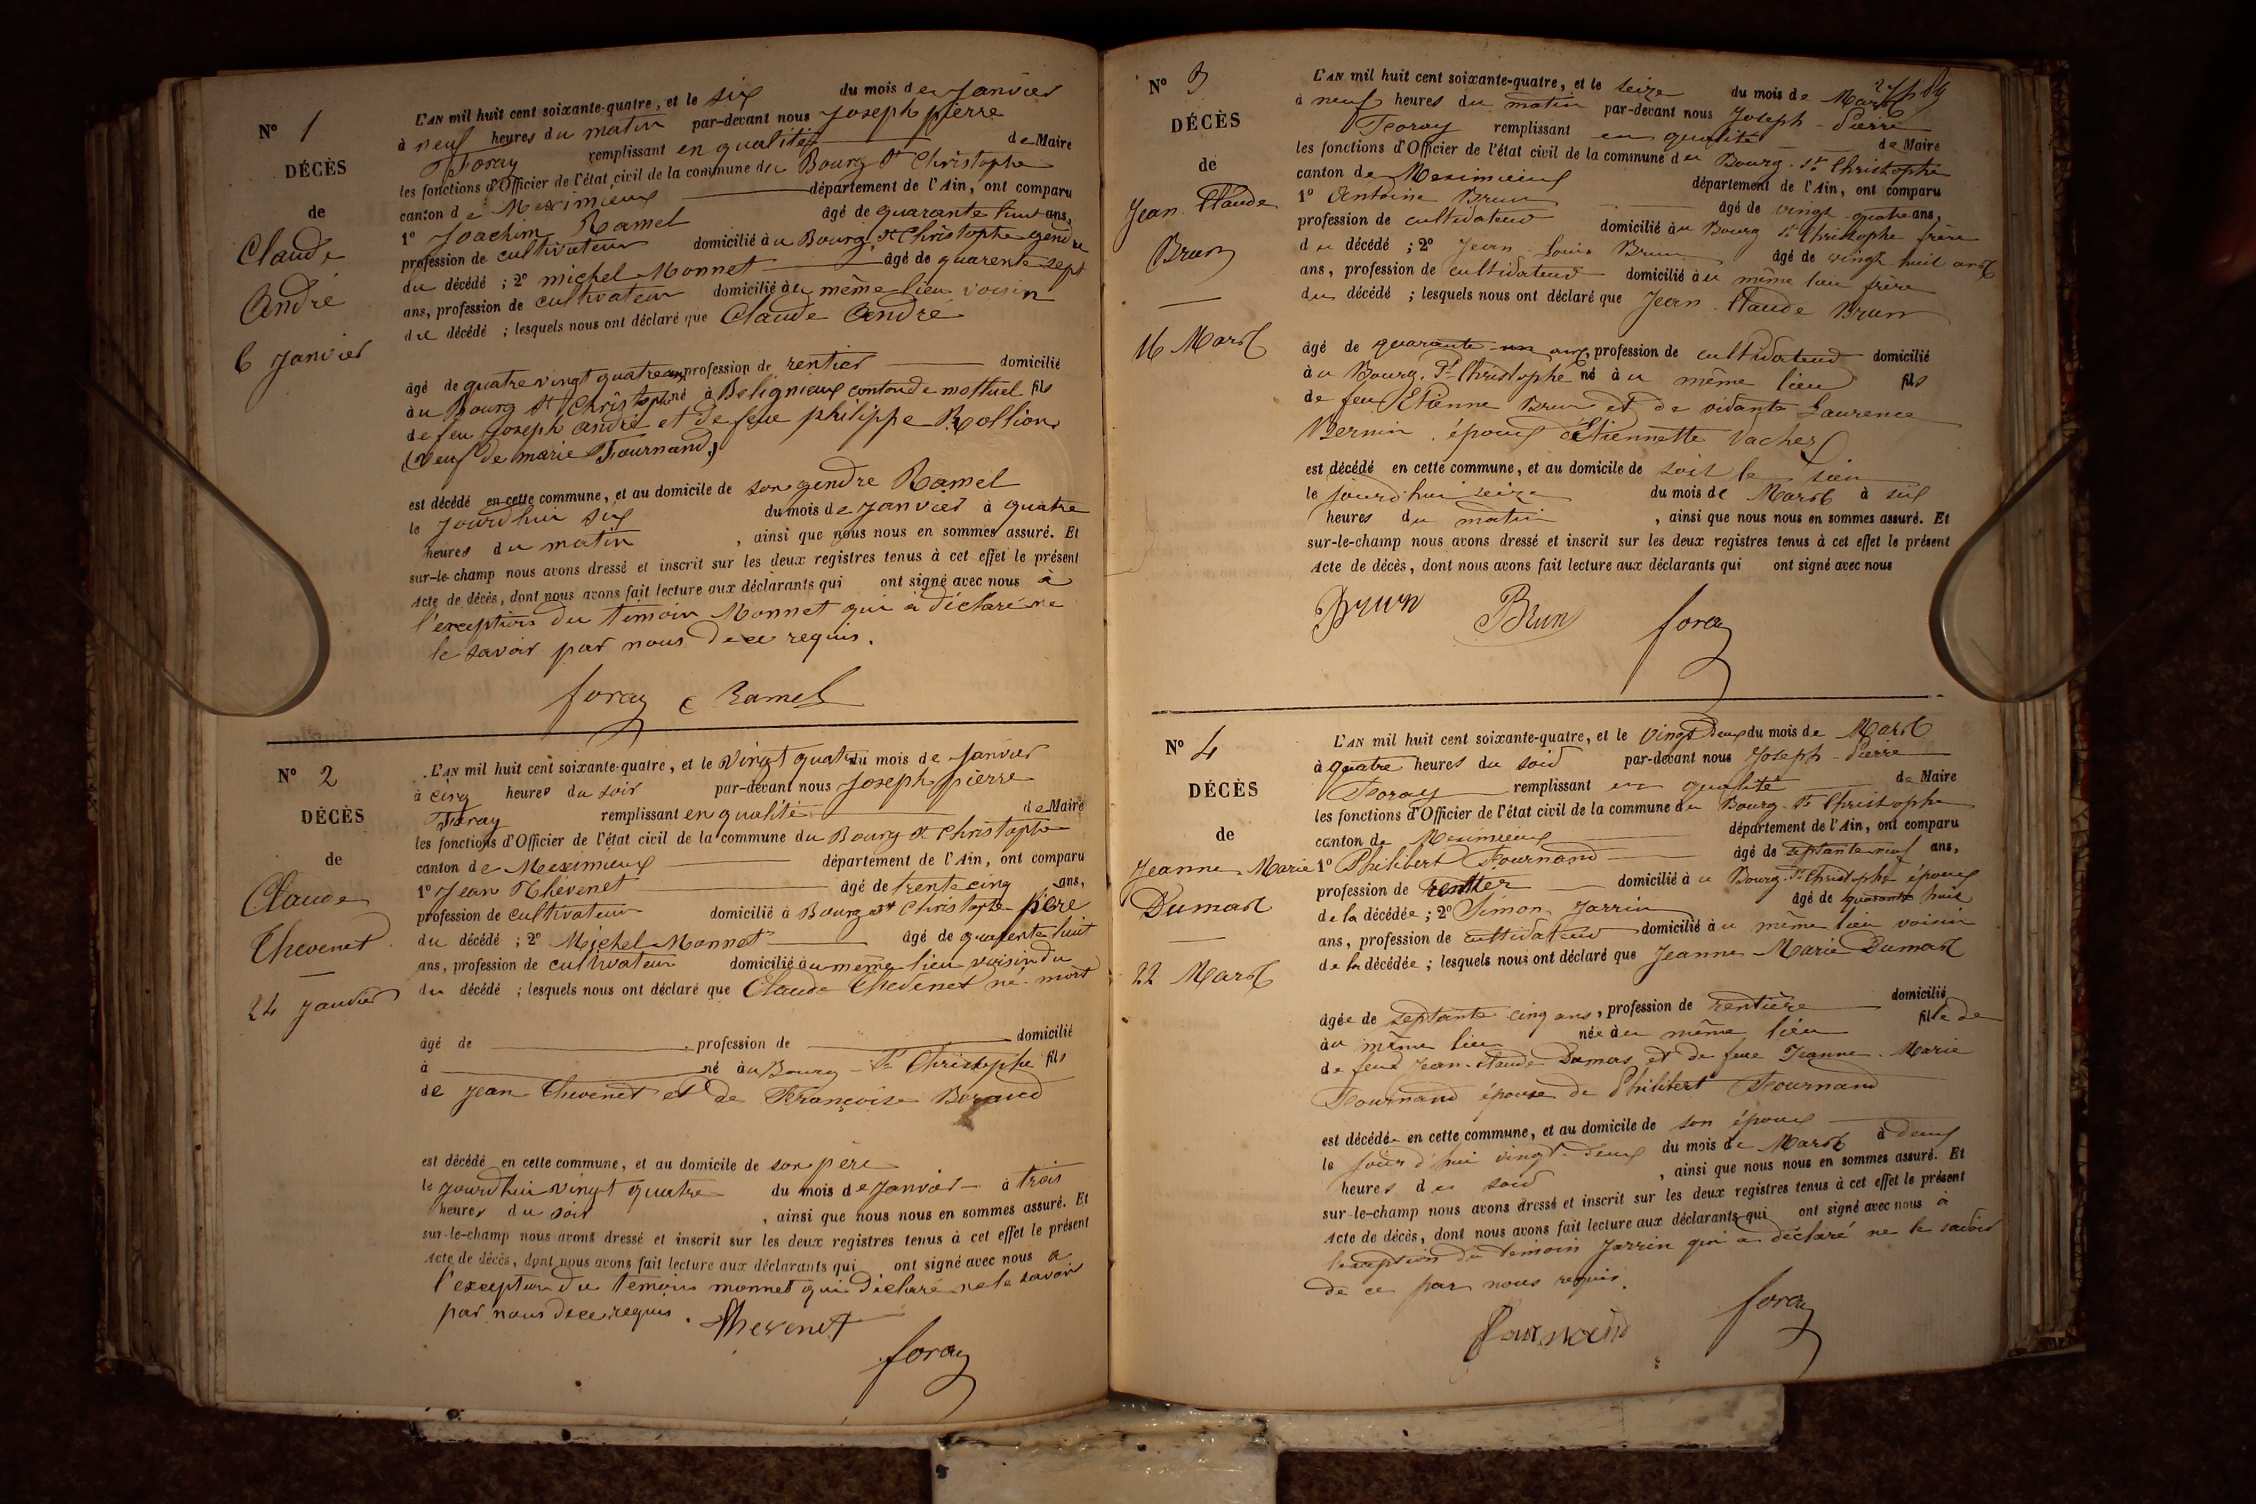 N° 1
DÉCÈS
de
Claude
André
6 Janvier
L'AN mil huit cent soixante-quatre, et le six du mois de Janvier
à neuf heures du matin par-devant nous Joseph pierre
Foray remplissant en qualité de Maire
les fonctions d'Officier de l'état civil de la commune du Bourg St Christophe
canton de Meximieux département de l'Ain, ont comparu
1° Joachim Ramel âgé de quarante huit ans,
profession de cultivateur domicilié à u Bourg St Christophe gendre
du décédé ; 2° michel Monnet âgé de quarente sept
ans, profession de cultivateur domicilié à u même lieu voisin
du décédé ; lesquels nous ont déclaré que Claude André
âgé de quatre vingt quatre ans profession de rentier domicilié
à u Bourg St Christophe né à Beligneux canton de motluel fils
de feu Joseph andré et de feue philippe Rollion
(Veuf de marie Tournand)
est décédé en cette commune, et au domicile de son gendre Ramel
le jourd'hui six du mois de Janvier à quatre
heures du matin , ainsi que nous nous en sommes assuré. Et
sur-le-champ nous avons dressé et inscrit sur les deux registres tenus à cet effet le présent
Acte de décès, dont nous avons fait lecture aux déclarants qui ont signé avec nous à
l'exception du témoin Monnet qui à déclaré ne
le savoir par nous de ce requis.
foray Ramel
N° 2
DÉCÈS
de
Claude
Thevenet
24 Janvier
L'AN mil huit cent soixante-quatre, et le vingt quatre du mois de Janvier
à cinq heures du soir par-devant nous Joseph pierre
Foray remplissant en qualité de Maire
les fonctions d'Officier de l'état civil de la commune du Bourg St Christophe
canton de Meximieux département de l'Ain, ont comparu
1° Jean Thévenet âgé de trente cinq ans,
profession de cultivateur domicilié à Bourg St Christophe père
du décédé ; 2° Michel Monnet âgé de quarente huit
ans, profession de cultivateur domicilié à u même lieu voisin du
du décédé ; lesquels nous ont déclaré que Claude Thevenet né-mort
âgé de profession de domicilié
à né à u Bourg - St Christophe fils
de Jean Thevenet et de Françoise Beraud
est décédé en cette commune, et au domicile de son père
le jourd'hui vingt quatre du mois de Janvier à trois
heures du soir , ainsi que nous nous en sommes assuré. Et
sur-le-champ nous avons dressé et inscrit sur les deux registres tenus à cet effet le présent
Acte de décès, dont nous avons fait lecture aux déclarants qui ont signé avec nous a
l'exception du temoin monnet qui déclaré ne le savoir
par nous de ce requis. Thevenet
foray
N° 3
DÉCÈS
de
Jean Claude
Brun
16 Mars
L'AN mil huit cent soixante-quatre, et le seize du mois de Mars
à neuf heures du matin par-devant nous Joseph-Pierre
Foray remplissant en qualité de Maire
les fonctions d'Officier de l'état civil de la commune du Bourg-St Christophe
canton de Meximieux département de l'Ain, ont comparu
1° Antoine Brun âgé de vingt quatre ans,
profession de cultivateur domicilié à u Bourg St Christophe frère
du décédé ; 2° Jean-Louis Brun âgé de vingt huit ans
ans, profession de cultivateur domicilié à u même lieu frère
du décédé ; lesquels nous ont déclaré que Jean-Claude Brun
âgé de quarante-un ans, profession de cultivateur domicilié
à u Bourg-St Christophe né à u même lieu fils
de feu Etienne Brun et de vivante Laurence
Bernin, époux d'Etiennette Vacher
est décédé en cette commune, et au domicile de soit le sien
le jourd'hui seize du mois de Mars à six
heures du matin , ainsi que nous nous en sommes assuré. Et
sur-le-champ nous avons dressé et inscrit sur les deux registres tenus à cet effet le présent
Acte de décès, dont nous avons fait lecture aux déclarants qui ont signé avec nous
Brun Brun foray
N° 4
DÉCÈS
de
Jeanne Marie
Dumas
22 Mars
L'AN mil huit cent soixante-quatre, et le vingt deux du mois de Mars
à quatre heures du soir par-devant nous Joseph-Pierre
Foray remplissant en qualité de Maire
les fonctions d'Officier de l'état civil de la commune du Bourg-St Christophe
canton de Meximieux département de l'Ain, ont comparu
1° Philibert Tournand âgé de septante neuf ans,
profession de rentier domicilié à u Bourg-St Christophe époux
de la décédée ; 2° Simon Jarrin âgé de quarante huit
ans, profession de cultivateur domicilié à u même lieu voisin
de la décédée ; lesquels nous ont déclaré que Jeanne Marie Dumas
âgée de septante cinq ans, profession de rentière domicilié
à u même lieu née à u même lieu fille de
de feu Jean-Claude Dumas et de feue Jeanne-Marie
Tournand épouse de Philibert Tournand
est décédée en cette commune, et au domicile de son époux
le jourd'hui vingt-deux du mois de Mars à deux
heures du soir , ainsi que nous nous en sommes assuré. Et
sur-le-champ nous avons dressé et inscrit sur les deux registres tenus à cet effet le présent
Acte de décès, dont nous avons fait lecture aux déclarants qui ont signé avec nous à
l'exception du temoin Jarrin qui a déclaré ne le savoir
de ce par nous requis.
Tournand foray